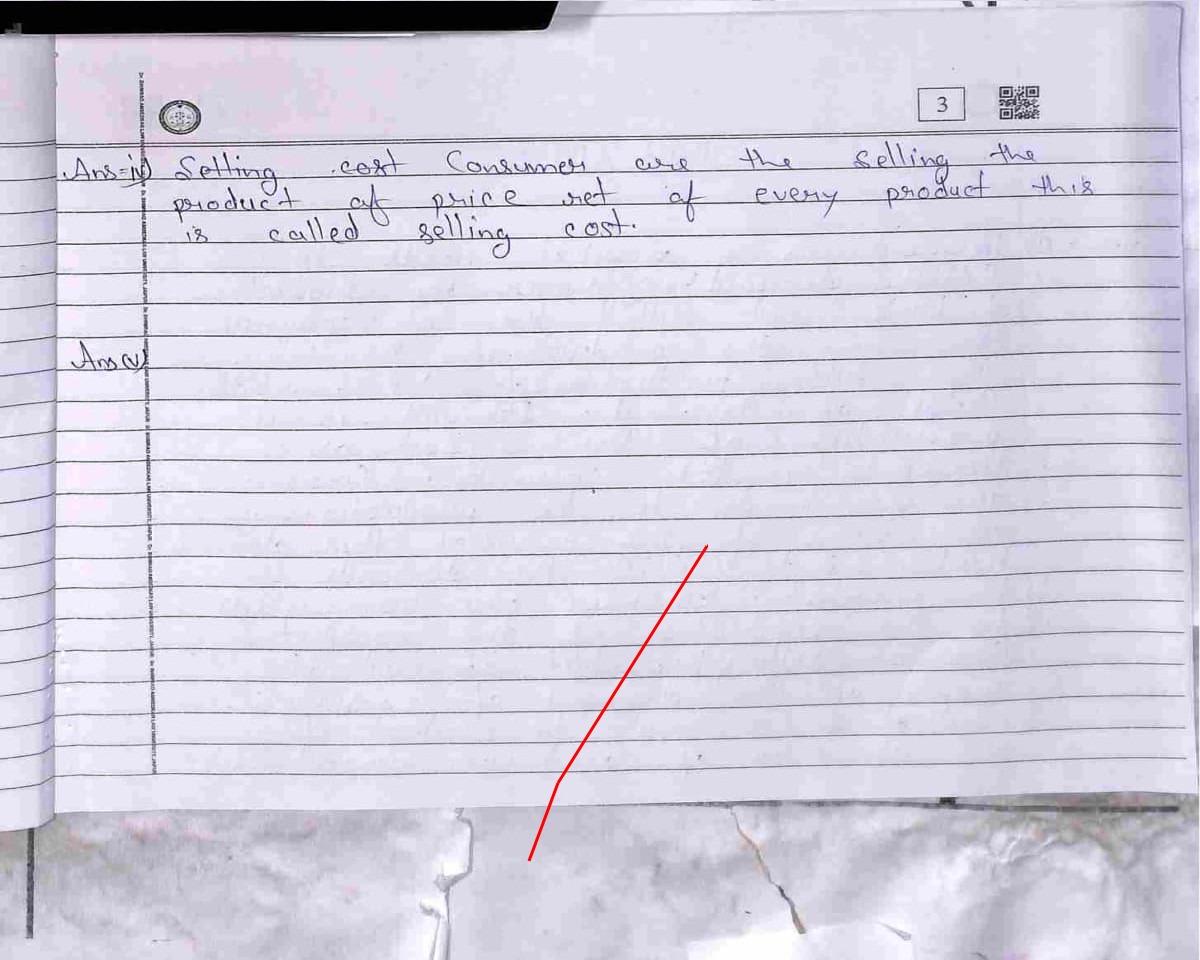 3
Ans=iv) Selling cost Consumer are the selling the
product of price ret of every product this
is called selling cost.
Ans(v)